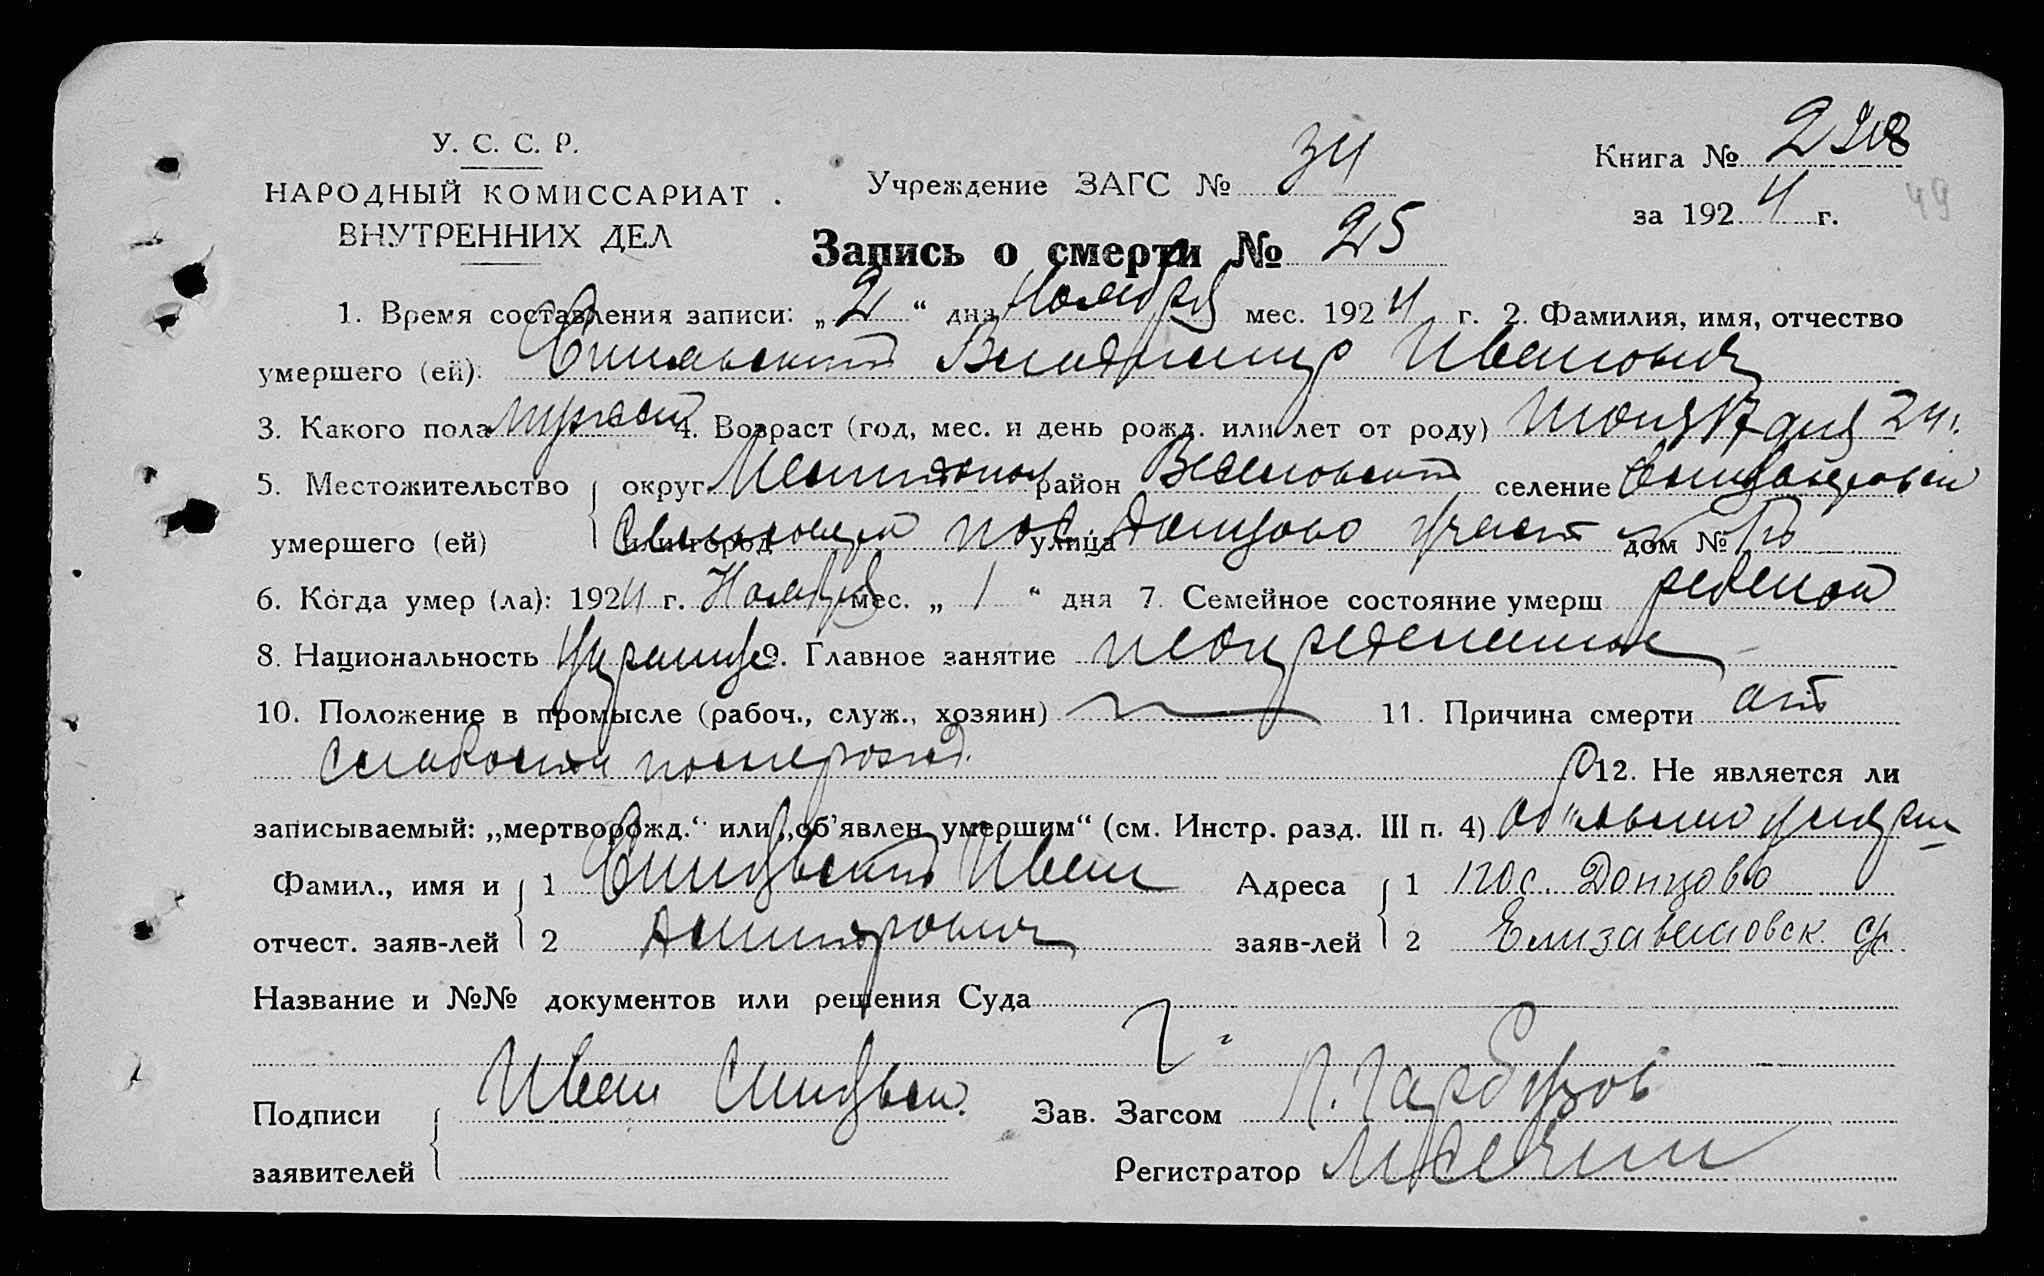 У. С. С. Р.
НАРОДНЫЙ КОМИССАРИАТ
ВНУТРЕННИХ ДЕЛ
Учреждение ЗАГС № 34
Книга №
за 1924 г.
49
Запись о смерти № 25
1. Время составления записи: „2“ дня Ноября мес. 1924 г. 2. Фамилия, имя, отчество
умершего (ей): Владимир Иванович
3. Какого пола мужской 4. Возраст (год, мес. и день рожд. или лет от роду) 17 дня 24 г.
5. Местожительство округ Мелитопол район Веселовский селение
умершего (ей) или город пос. улица Донцово участ дом №
6. Когда умер (ла): 1924 г. Ноября мес. „1“ дня 7. Семейное состояние умерш ребенок
8. Национальность Украинец 9. Главное занятие неопределенное
10. Положение в промысле (рабоч., служ., хозяин) 11. Причина смерти от
слабости после рожд. 12. Не является ли
записываемый: „мертворожд.“ или „об'явлен умершим“ (см. Инстр. разд. III п. 4)
Фамил., имя и 1 Иван Адреса 1 пос. Донцово
отчест. заяв-лей 2 заяв-лей 2 Елизаветовск.
Название и №№ документов или решения Суда
Подписи Иван Зав. Загсом П. Гарбузов
заявителей Регистратор